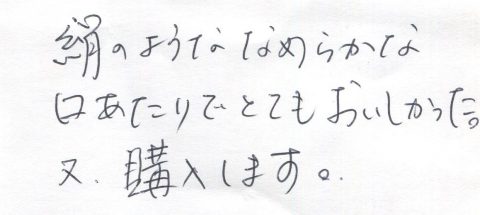 絹のようななめらかな
口あたりでとてもおいしかった。
又、購入します。